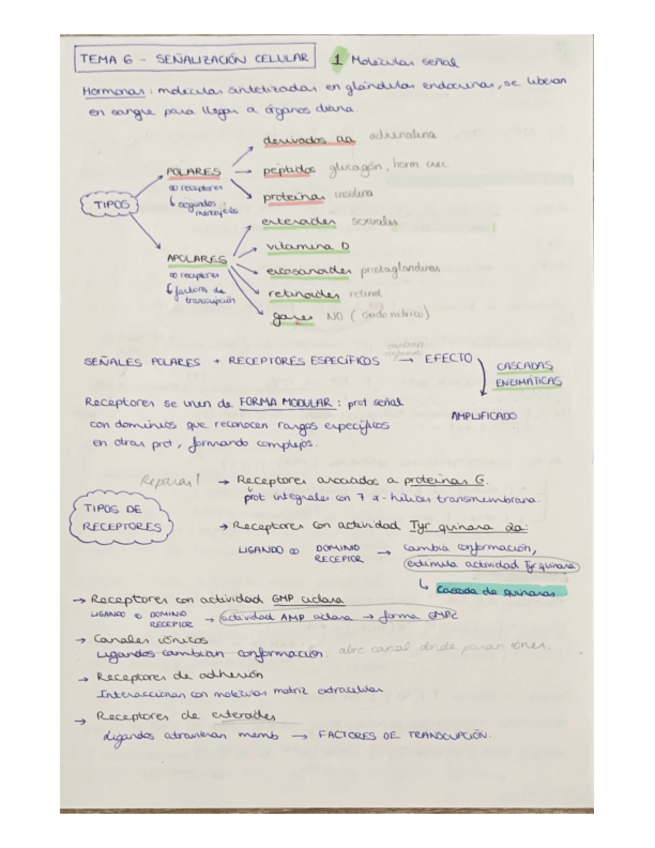 TEMA 6 - SEÑALIZACIÓN CELULAR 1 Moléculas señal
Hormonas: moléculas sintetizadas en glándulas endocrinas, se liberan
en sangre para llegar a órganos diana
TIPOS
POLARES
receptores
segundos
mensajeros
derivados aa adrenalina
péptidos glucagón, horm crec
proteínas insulina
APOLARES
receptores
factores de
transcripción
esteroides sexuales
vitamina D
eicosanoides prostaglandinas
retinoides retinol
gases NO (óxido nítrico)
SEÑALES POLARES + RECEPTORES ESPECÍFICOS → EFECTO
CASCADAS
ENZIMÁTICAS
AMPLIFICADO
Receptores se unen de FORMA MODULAR: prot señal
con dominios que reconocen rasgos específicos
en otras prot, formando complejos.
TIPOS DE
RECEPTORES
Repasar!
→ Receptores asociados a proteínas G.
prot integrales con 7 α-hélices transmembrana.
→ Receptores con actividad Tyr quinasa
LIGANDO DOMINIO
RECEPTOR
→ cambia conformación,
estimula actividad Tyr quinasa
↳ Cascada de quinasas
→ Receptores con actividad GMP ciclasa
LIGANDO DOMINIO
RECEPTOR
→ actividad AMP ciclasa → forma GMPc
→ Canales iónicos
Ligandos cambian conformación. abre canal donde pasan iones.
→ Receptores de adhesión
Interaccionan con moléculas matriz extracelular
→ Receptores de esteroides
Ligandos atraviesan memb → FACTORES DE TRANSCUPCIÓN.